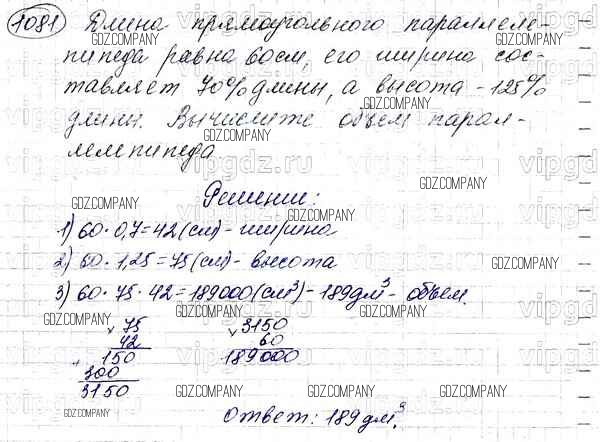 1081 Длина прямоугольного параллеле-
пипеда равна 60см, его ширина сос-
тавляет 70% длины, а высота - 125%
длины. Вычислите объем парал-
лелепипеда
Решение:
1) 60 · 0,7 = 42 (см) - ширина
2) 60 · 1,25 = 75 (см) - высота
3) 60 · 75 · 42 = 189000 (см³) - 189 дм³ - объем.
× 75
42
150
+ 300
3150
× 3150
60
189000
Ответ: 189 дм³
GDZ.COMPANY
vipgdz.ru